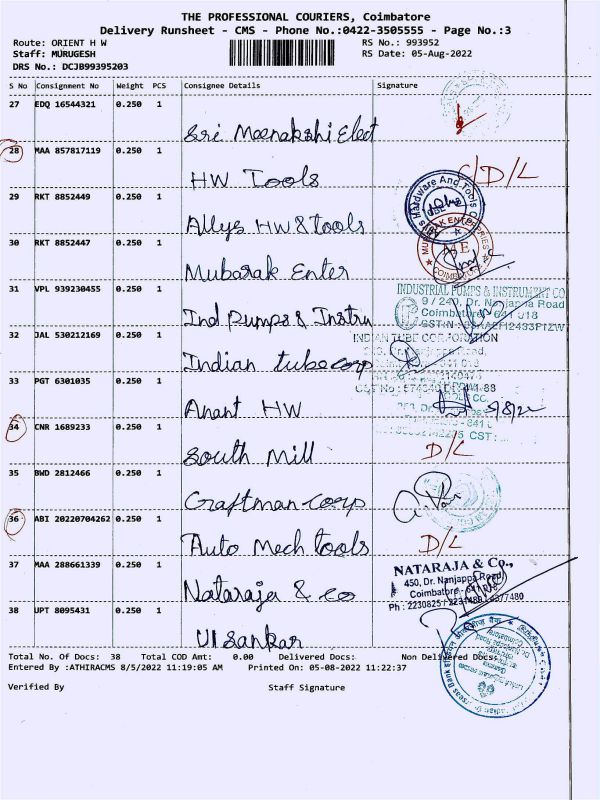 THE PROFESSIONAL COURIERS, Coimbatore
Delivery Runsheet - CMS - Phone No.:0422-3505555 - Page No.:3
Route: ORIENT H W
RS No.: 993952
Staff: MURUGESH
RS Date: 05-Aug-2022
DRS No.: DCJB99395203
S No Consignment No Weight PCS Consignee Details Signature
27 EDQ 16544321 0.250 1
Sri Meenakshi Elect
28 MAA 857817119 0.250 1
HW Tools
C/D/L
29 RKT 8852449 0.250 1
Allys HW & tools
Hardware And Tools
30 RKT 8852447 0.250 1
Mubarak Enter
ME
31 VPL 939230455 0.250 1
INDUSTRIAL PUMPS & INSTRUMENT CO.
9 / 240, Dr. Nanjappa Road
Coimbatore - 641 018
Ind Pumps & Instru
32 JAL 530212169 0.250 1
INDIAN TUBE CORPORATION
Indian tube corp
33 PGT 6301035 0.250 1
Anant HW
5/8/22
34 CNR 1689233 0.250 1
CST:
South Mill
D/L
35 BWD 2812466 0.250 1
Craftman corp
36 ABI 20220704262 0.250 1
Auto Mech tools
D/L
37 MAA 288661339 0.250 1
NATARAJA & Co.,
450, Dr. Nanjappa Road
Coimbatore - 641 018
Nataraja & co
Ph : 2230825
38 UPT 8095431 0.250 1
UI Sankar
Total No. Of Docs: 38 Total COD Amt: 0.00 Delivered Docs: Non Delivered Docs:
Entered By :ATHIRACMS 8/5/2022 11:19:05 AM Printed On: 05-08-2022 11:22:37
Verified By Staff Signature